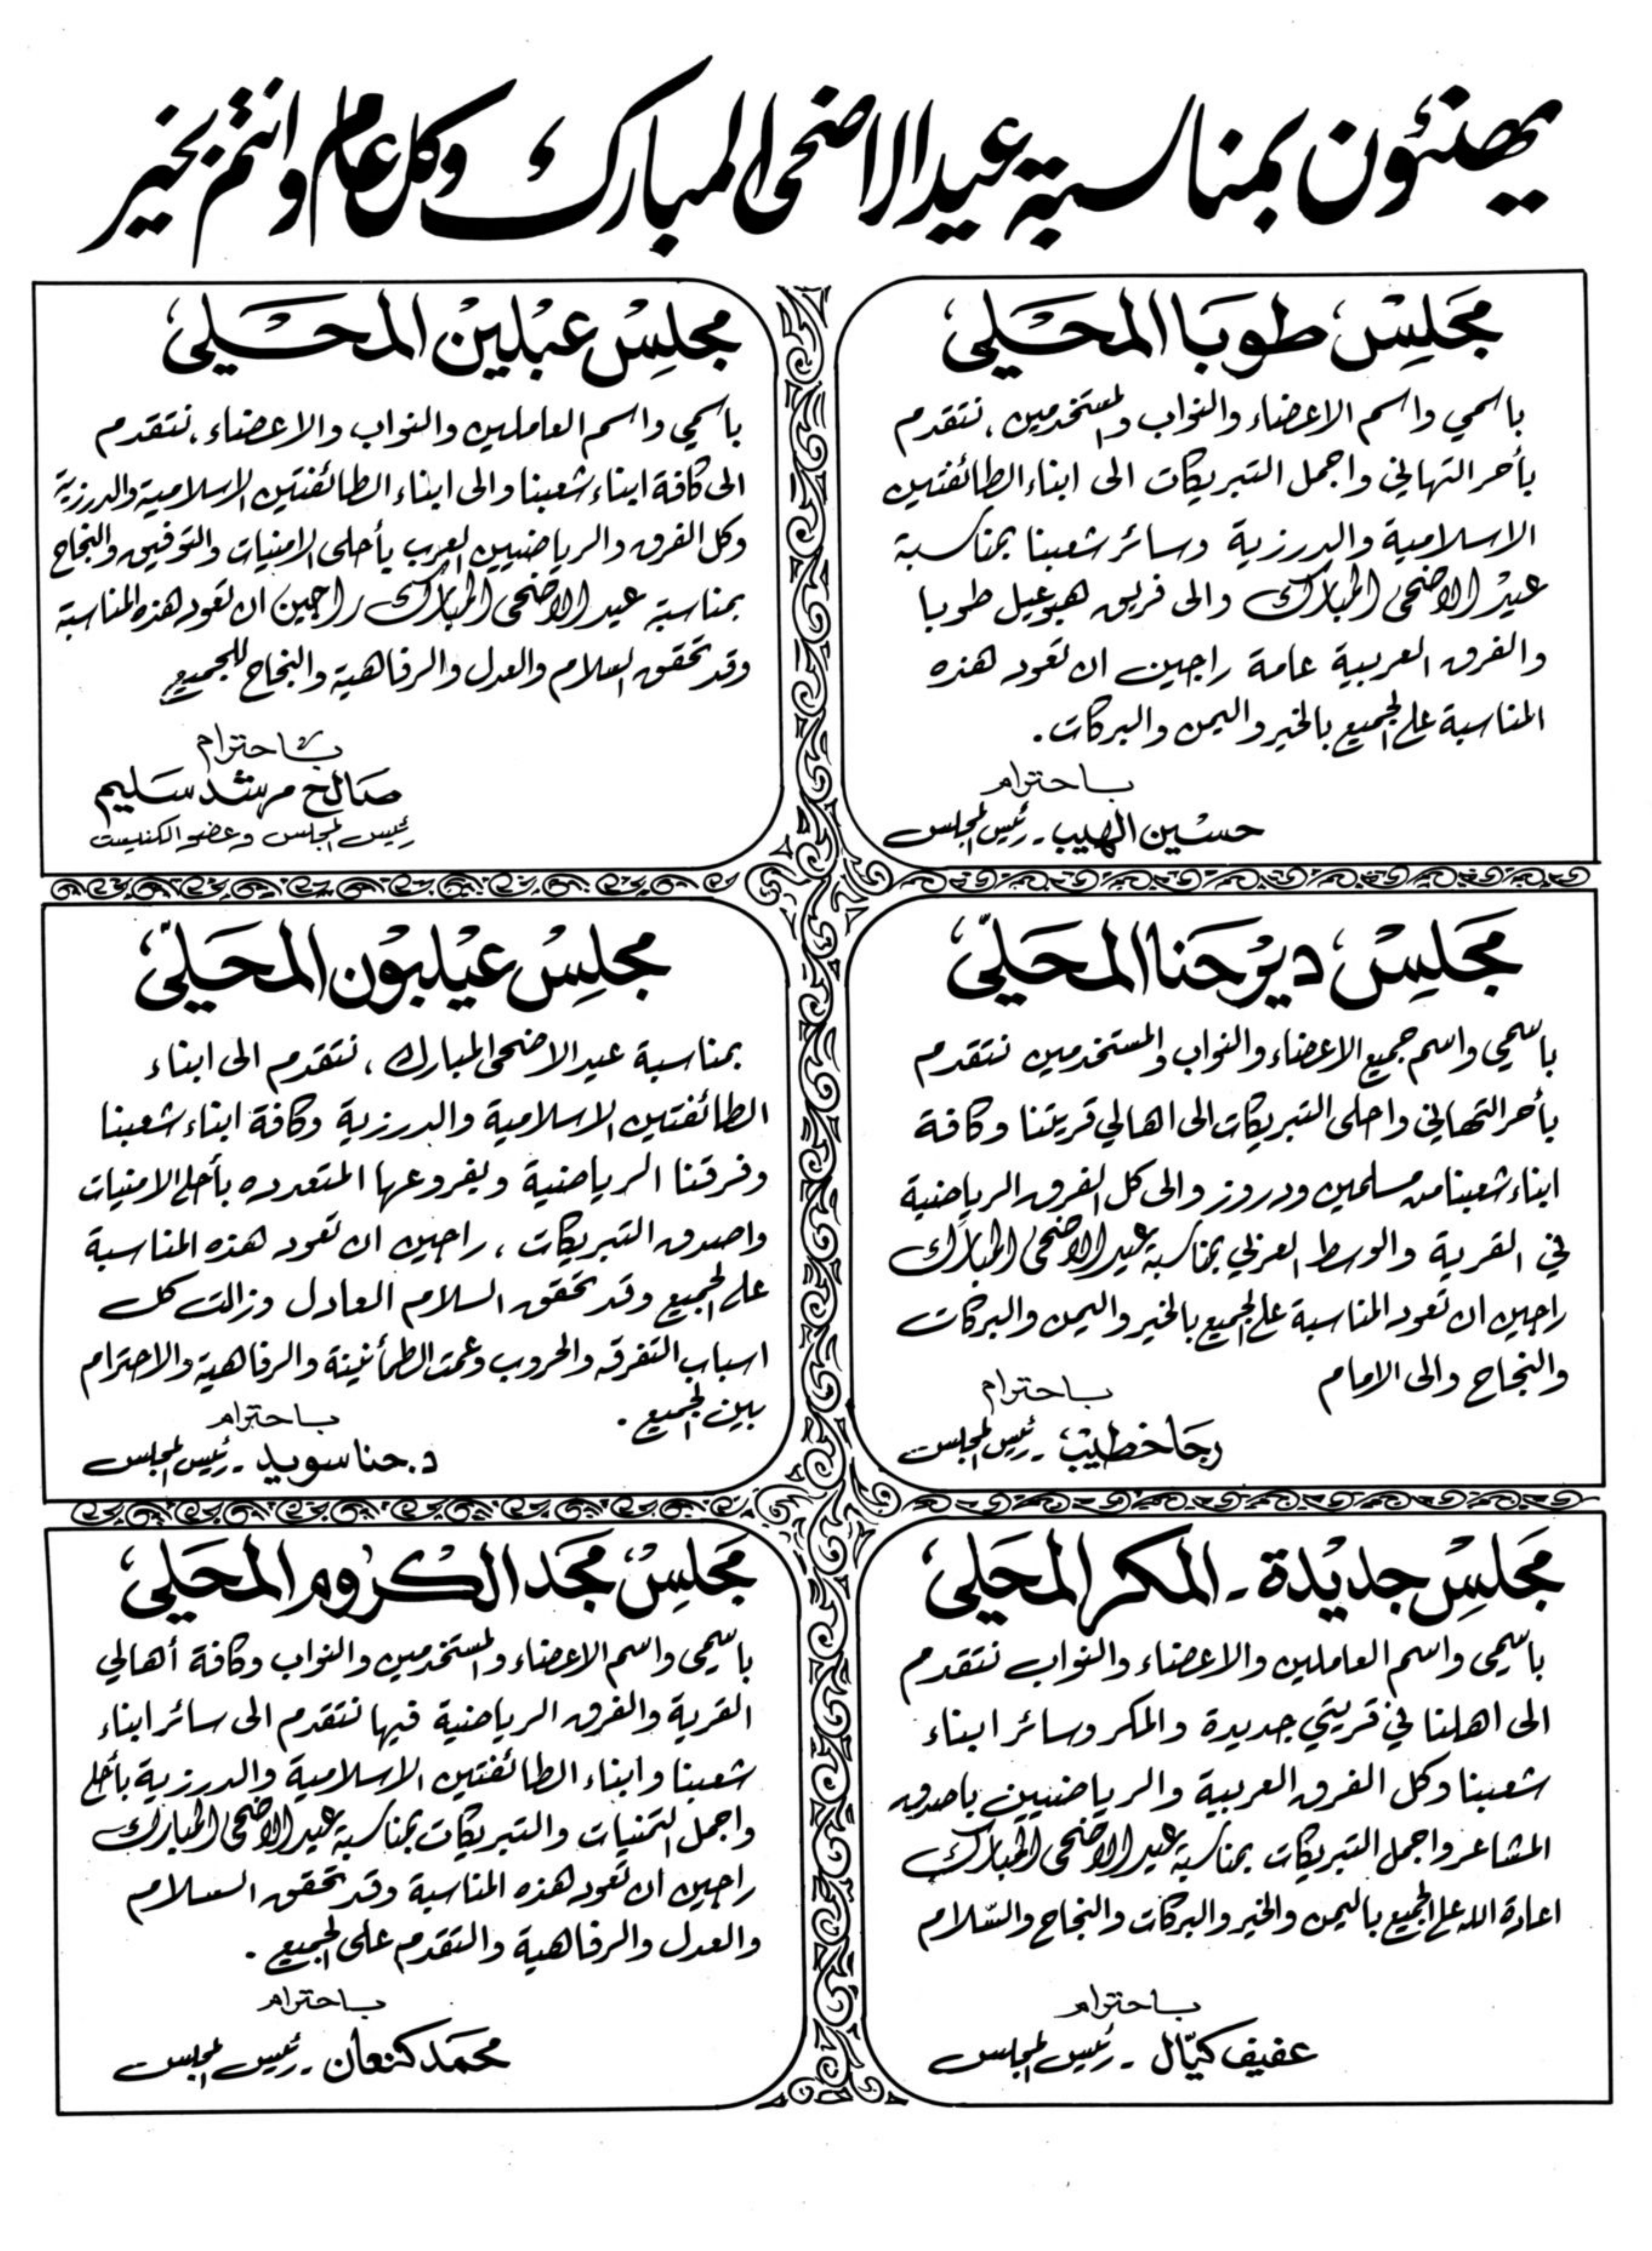 يهنئون بمناسبة عيد الاضحى المبارك وكل عام وانتم بخير
مجلس طوبا المحلي
باسمي واسم الاعضاء والنواب والمستخدمين، نتقدم
بأحر التهاني واجمل التبريكات الى ابناء الطائفتين
الاسلامية والدرزية وسائر شعبنا بمناسبة
عيد الاضحى المبارك والى فريق هبوعيل طوبا
والفرق العربية عامة راجين ان تعود هذه
المناسبة على الجميع بالخير واليمن والبركات.
باحترام
حسين الهيب - رئيس المجلس
مجلس عبلين المحلي
باسمي واسم العاملين والنواب والاعضاء، نتقدم
الى كافة ابناء شعبنا والى ابناء الطائفتين الاسلامية والدرزية
وكل الفرق والرياضيين العرب بأحلى الامنيات والتوفيق والنجاح
بمناسبة عيد الاضحى المبارك راجين ان تعود هذه المناسبة
وقد تحقق السلام والعدل والرفاهية والنجاح للجميع
باحترام
صالح مرشد سليم
رئيس المجلس وعضو الكنيست
مجلس دير حنا المحلي
باسمي واسم جميع الاعضاء والنواب والمستخدمين نتقدم
بأحر التهاني واحلى التبريكات الى اهالي قريتنا وكافة
ابناء شعبنا من مسلمين ودروز والى كل الفرق الرياضية
في القرية والوسط العربي بمناسبة عيد الاضحى المبارك
راجين ان تعود المناسبة على الجميع بالخير واليمن والبركات
والنجاح والى الامام
باحترام
رجا خطيب - رئيس المجلس
مجلس عيلبون المحلي
بمناسبة عيد الاضحى المبارك، نتقدم الى ابناء
الطائفتين الاسلامية والدرزية وكافة ابناء شعبنا
وفرقنا الرياضية وبفروعها المتعدده بأحلى الامنيات
واصدق التبريكات، راجين ان تعود هذه المناسبة
على الجميع وقد تحقق السلام العادل وزالت كل
اسباب التفرقه والحروب وعمت الطمأنينة والرفاهية والاحترام
بين الجميع.
باحترام
د. حنا سويد - رئيس المجلس
مجلس جديدة - المكر المحلي
باسمي واسم العاملين والاعضاء والنواب نتقدم
الى اهلنا في قريتي جديدة والمكر وسائر ابناء
شعبنا وكل الفرق العربية والرياضيين باصدق
المشاعر واجمل التبريكات بمناسبة عيد الاضحى المبارك
اعادة الله على الجميع باليمن والخير والبركات والنجاح والسّلام
باحترام
عفيف كيّال - رئيس المجلس
مجلس مجد الكروم المحلي
باسمي واسم الاعضاء والمستخدمين والنواب وكافة أهالي
القرية والفرق الرياضية فيها نتقدم الى سائر ابناء
شعبنا وابناء الطائفتين الاسلامية والدرزية بأحلى
واجمل التمنيات والتبريكات بمناسبة عيد الاضحى المبارك
راجين ان تعود هذه المناسبة وقد تحقق السلام
والعدل والرفاهية والتقدم على الجميع.
باحترام
محمد كنعان - رئيس المجلس